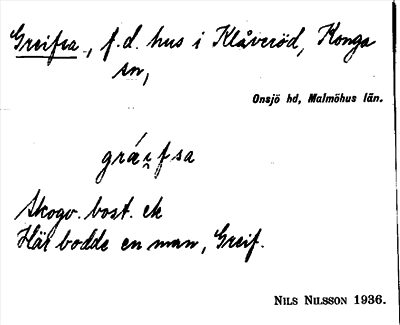 Greifsa, f.d. hus i Klåveröd, Konga
sn,
Onsjö hd, Malmöhus län.
grá i̯ fsa
Skogv. bost. ek
Här bodde en man, Greif.
NILS NILSSON 1936.